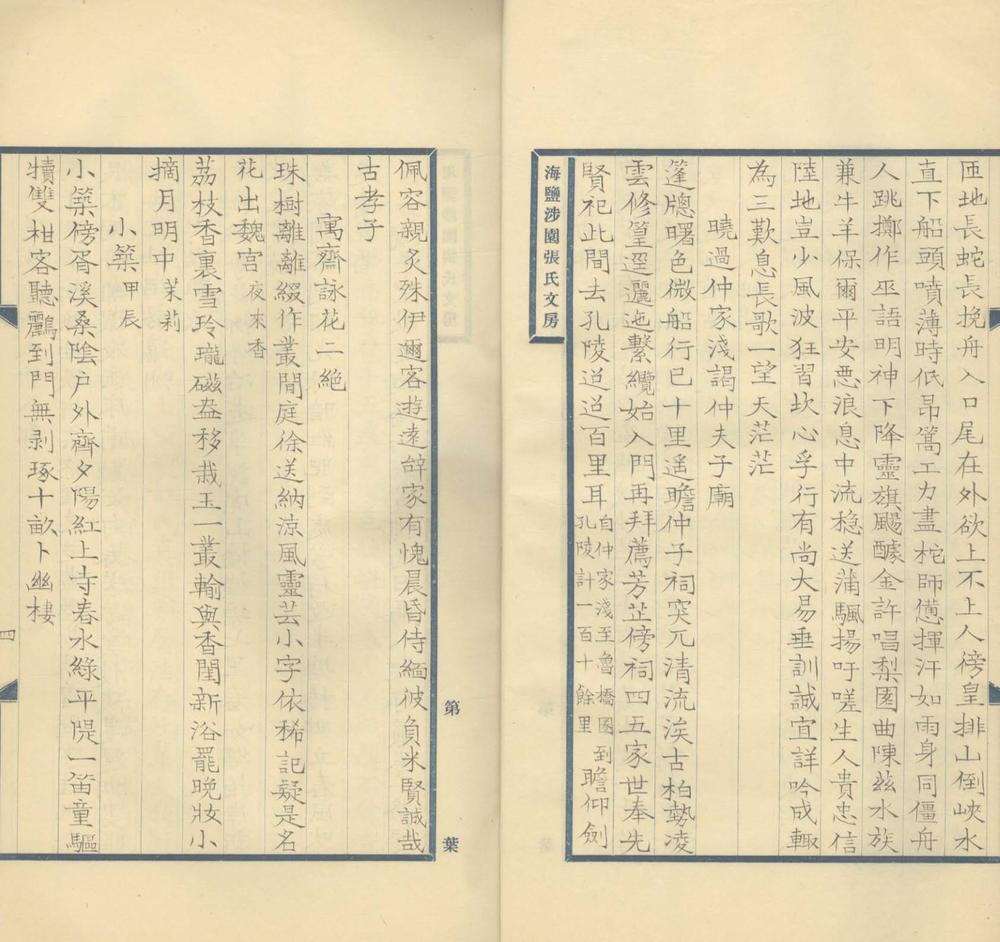 匝地長蛇長挽舟入口尾在外欲上不上人傍皇排山倒峽水
直下船頭噴薄時低昂篙工力盡柁師憊揮汗如雨身同僵舟
人跳擲作巫語明神下降靈旗颺醵金許唱梨園曲陳茲水族
兼牛羊保爾平安惡浪息中流稳送蒲颿揚吁嗟生人貴忠信
陸地豈少風波狂習坎心孚行有尚大易垂訓誠宜詳吟成輙
為三歎息長歌一望天茫茫
曉過仲家淺謁仲夫子廟
篷牕曙色微船行已十里遥瞻仲子祠突兀清流涘古柏勢凌
雲修篁逕邐迤繫纜始入門再拜薦芳芷傍祠四五家世奉先
賢祀此間去孔陵迢迢百里耳自仲家淺至魯橋圂孔陵計一百十餘里到瞻仰劍
海鹽涉園張氏文房
佩容親炙殊伊邇客遊遠辞家有愧晨昏侍緬彼負米賢誠哉
古孝子
寓齋詠花二絶
珠樹離離綴作叢閒庭徐送納涼風靈芸小字依稀記疑是名
花出魏宮夜來香
荔枝香裏雪玲瓏磁盎移栽玉一叢輸與香閨新浴罷晚妝小
摘月明中茉莉
小築甲辰
小築傍胥溪桑陰户外齊夕陽紅上寺春水綠平隄一笛童驅
犢雙柑客聽鸝到門無剥琢十畝卜幽棲
第
四
葉